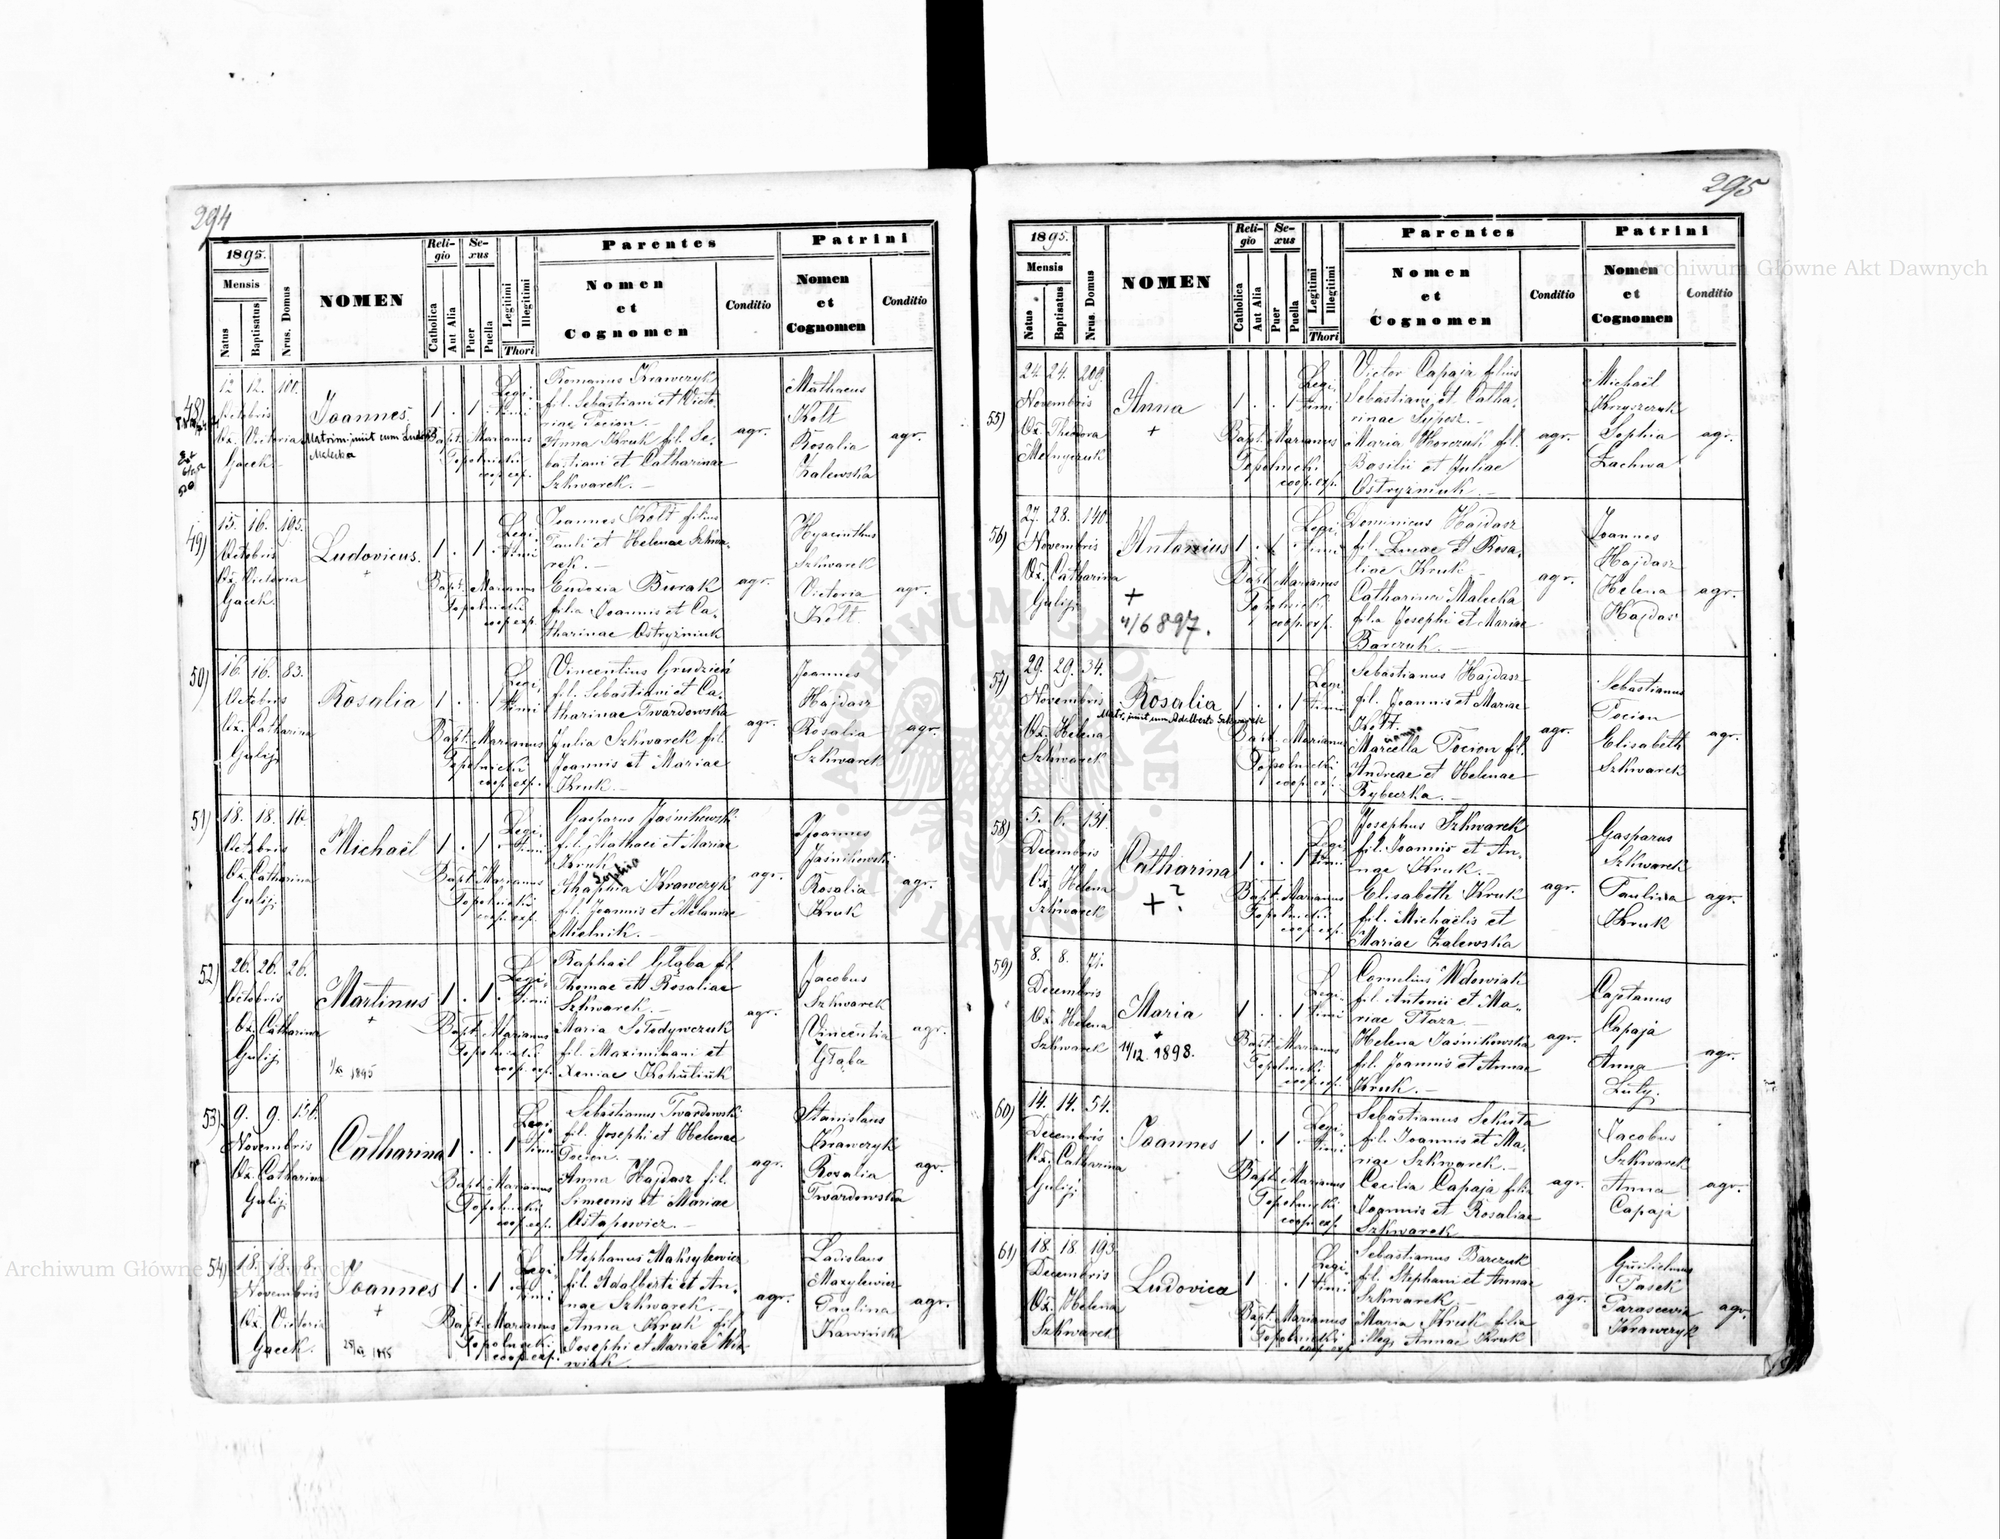 294
1895.
Mensis
Natus
Baptisatus
Nrus. Domus
NOMEN
Reli-
gio
Catholica
Aut Alia
Se-
xus
Puer
Puella
Legitimi
Illegitimi
Thori
Parentes
Nomen
et
Cognomen
Conditio
Patrini
Nomen
et
Cognomen
Conditio
48)
12. 12. 101.
Octobris
Ob. Victoria
Gacek.
Joannes
Matrim. iniit cum Ludov.
Malecka
1 . 1 .
Legi-
timi
Bapt. Marianus
Topolnicki
coop. exp.
Romanus Krawczyk
fil. Sebastiani et Victo-
riae Pocion.—
Anna Kruk fil. Se-
bastiani et Catharinae
Szkwarek.—
agr.
Mathaeus
Kott
Rosalia
Zalewska
agr.
49)
15. 16. 195.
Octobris
Ob. Victoria
Gacek.
Ludovicus.
+
1 . 1 .
Legi-
timi
Bapt. Marianus
Topolnicki
coop. exp.
Joannes Kott filius
Pauli et Helenae Szkwa-
rek.—
Eudoxia Burak
filia Joannis et Ca-
tharinae Ostryżniuk
agr.
Hyacinthus
Szkwarek
Victoria
Kott
agr.
50)
16. 16. 83.
Octobris
Ob. Catharina
Gulij
Rosalia
1 . . 1
Legi-
timi
Bapt. Marianus
Topolnicki
coop. exp.
Vincentius Grudzień
fil. Sebastiani et Ca-
tharinae Twardowska
Julia Szkwarek fil.
Joannis et Mariae
Kruk.—
agr.
Joannes
Hajdasz
Rosalia
Szkwarek
agr.
51)
18. 18. 112.
Octobris
Ob. Catharina
Gulij
Michaël
1 . 1 .
Legi-
timi
Bapt. Marianus
Topolnicki
coop. exp.
Gasparus Jaśnikowski
fil. Mathaei et Mariae
Kruk
Sophia
Ahaphia Krawczyk
fil. Joannis et Melaniae
Mielnik.—
agr.
Joannes
Jaśnikowski
Rosalia
Kruk
agr.
52)
26. 26. 26.
Octobris
Ob. Catharina
Gulij
Martinus
+
1895
1 . 1 .
Legi-
timi
Bapt. Marianus
Topolnicki
coop. exp.
Raphaël Głąba fil.
Thomae et Rosaliae
Szkwarek.—
Maria Sołodywczuk
fil. Maximiliani et
Xeniae Kohutiuk
agr.
Jacobus
Szkwarek
Vincentia
Głąba
agr.
53)
9. 9. 151.
Novembris
Ob. Catharina
Gulij
Catharina
1 . . 1
Legi-
timi
Bapt. Marianus
Topolnicki
coop. exp.
Sebastianus Twardowski
fil. Josephi et Helenae
Pocion.
Anna Hajdasz fil.
Simeonis et Mariae
Ostapowicz.—
agr.
Stanislaus
Krawczyk
Rosalia
Twardowska
agr.
54)
18. 18. 8.
Novembris
Ob. Victoria
Gacek.
Joannes
+
1895
1 . 1 .
Legi-
timi
Bapt. Marianus
Topolnicki
coop. exp.
Stephanus Maksylewicz
fil. Adalberti et An-
nae Szkwarek.—
Anna Kruk fil.
Josephi et Mariae Wdo-
wiak
agr.
Ladislaus
Maxylewicz
Paulina
Kawińska
agr.
295
1895.
Mensis
Natus
Baptisatus
Nrus. Domus
NOMEN
Reli-
gio
Catholica
Aut Alia
Se-
xus
Puer
Puella
Legitimi
Illegitimi
Thori
Parentes
Nomen
et
Cognomen
Conditio
Patrini
Nomen
et
Cognomen
Conditio
55)
24. 24. 209.
Novembris
Ob. Theodora
Melnyczuk
Anna
+
1 . . 1
Legi-
timi
Bapt. Marianus
Topolnicki
coop. exp.
Victor Capaja filius
Sebastiani et Catha-
rinae Sypoz.—
Maria Horczuk fil.
Basilii et Juliae
Ostryżniuk.—
agr.
Michaël
Kryszczuk
Sophia
Zachwa
agr.
56)
27. 28. 140.
Novembris
Ob. Catharina
Gulij
Antonius
+
4/6 897.
1 . 1 .
Legi-
timi
Bapt. Marianus
Topolnicki
coop. exp.
Dominicus Hajdasz
fil. Lucae et Rosa-
liae Kruk.—
Catharina Malecka
filia Josephi et Mariae
Barczuk.—
agr.
Joannes
Hajdasz
Helena
Hajdasz
agr.
57)
29. 29. 34.
Novembris
Ob. Helena
Szkwarek
Rosalia
Matr. iniit cum Adelberto Szkwarek
1 . . 1
Legi-
timi
Bapt. Marianus
Topolnicki
coop. exp.
Sebastianus Hajdasz
fil. Joannis et Mariae
Kott
Marcella Pocion fil.
Andreae et Helenae
Rybeczka.—
agr.
Sebastianus
Pocion
Elisabeth
Szkwarek
agr.
58)
5. 6. 131.
Decembris
Ob. Helena
Szkwarek
Catharina
+?
1 . . 1
Legi-
timi
Bapt. Marianus
Topolnicki
coop. exp.
Josephus Szkwarek
fil. Joannis et An-
nae Kruk.—
Elisabeth Kruk
fil. Michaëlis et
Mariae Zalewska
agr.
Gasparus
Szkwarek
Paulina
Kruk
agr.
59)
8. 8. 71.
Decembris
Ob. Helena
Szkwarek
Maria
+
14/12. 1898.
1 . . 1
Legi-
timi
Bapt. Marianus
Topolnicki
coop. exp.
Cornelius Wdowiak
fil. Antonii et Ma-
riae Płaza.—
Helena Jaśnikowska
fil. Joannis et Annae
Kruk.—
agr.
Cajetanus
Capaja
Anna
Luty.
agr.
60)
14. 14. 54.
Decembris
Ob. Catharina
Gulij
Joannes
1 . 1 .
Legi-
timi
Bapt. Marianus
Topolnicki
coop. exp.
Sebastianus Sekuta
fil. Joannis et Ma-
riae Szkwarek.—
Cecilia Capaja filia
Joannis et Rosaliae
Szkwarek.—
agr.
Jacobus
Szkwarek
Anna
Capaja
agr.
61)
18. 18. 193.
Decembris
Ob. Helena
Szkwarek
Ludovica
1 . . 1
Legi-
timi
Bapt. Marianus
Topolnicki
coop. exp.
Sebastianus Barczuk
fil. Stephani et Annae
Szkwarek.—
Maria Kruk filia
illeg. Annae Kruk
agr.
Guilielmus
Pasek
Parascevia
Krawczyk
agr.
Archiwum Główne Akt Dawnych
Archiwum Główne Akt Dawnych
ARCHIWUM GŁÓWNE AKT DAWNYCH